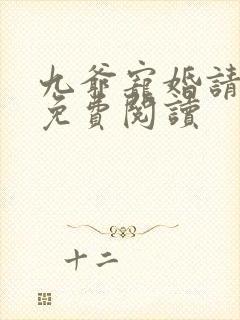 九爺寵婚請
免費閱讀
十二